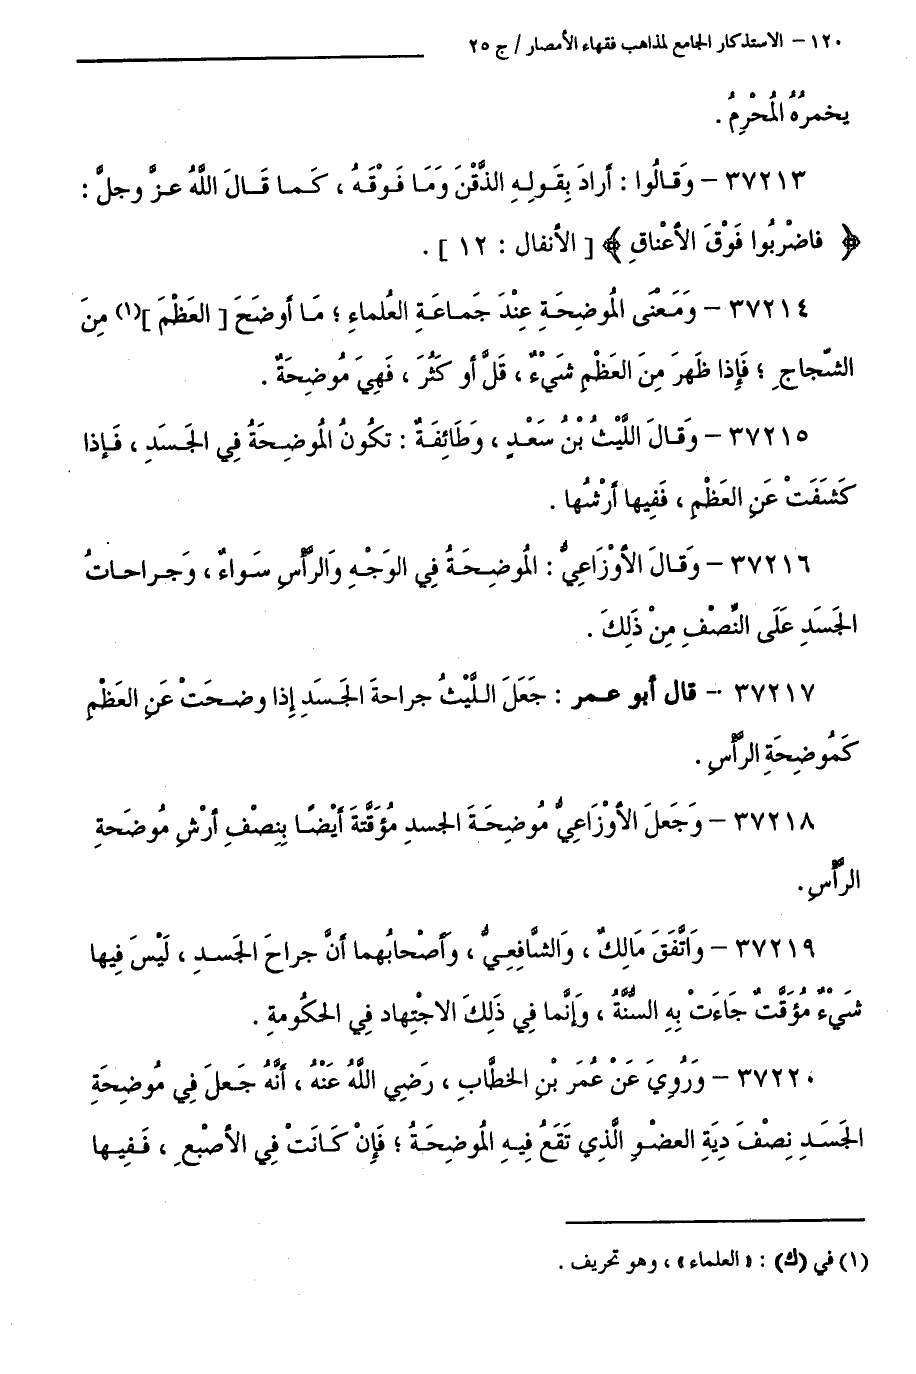 ١٢٠ – الاستذكار الجامع لمذاهب فقهاء الأمصار / ج ٢٥
يخمرُهُ المُحْرِمُ .
٣٧٢١٣ – وَقَالُوا : أرادَ بِقَولِهِ الذَّقْنَ وَمَا فَوْقَهُ ، كَما قَالَ اللَّهُ عزَّ وجلَّ :
﴿ فاضْرِبُوا فَوْقَ الأعْناقِ ﴾ [ الأنفال : ١٢ ] .
٣٧٢١٤ – وَمَعْنَى المُوضِحَةِ عِنْدَ جَماعَةِ العُلماءِ ؛ مَا أوضَحَ [ العَظْمَ ](١) مِنَ
الشّجاجِ ؛ فَإِذا ظَهرَ مِنَ العَظْمِ شَيْءٌ ، قَلَّ أو كَثُرَ ، فَهِيَ مُوضِحَةٌ .
٣٧٢١٥ – وَقالَ اللَّيْثُ بْنُ سَعْدٍ ، وَطَائِفَةٌ : تكُونُ المُوضِحَةُ فِي الجَسَدِ ، فَإذا
كَشَفَتْ عَنِ العَظْمِ ، فَفِيها أرْشُها .
٣٧٢١٦ – وَقَالَ الأوْزَاعِيُّ : المُوضِحَةُ فِي الوَجْهِ وَالرَّأسِ سَواءٌ ، وَجراحاتُ
الجَسَدِ عَلَى النِّصْفِ مِنْ ذَلِكَ .
٣٧٢١٧ – قال أبو عمر : جَعَلَ اللَّيْثُ جراحةَ الجَسَدِ إِذا وضحَتْ عَنِ العَظْمِ
كَمُوضِحَةِ الرَّأْسِ .
٣٧٢١٨ – وَجَعلَ الأوْزَاعِيُّ مُوضِحَةَ الجسدِ مُؤَقَّتَةَ أيْضًا بِنِصْفِ أرْشِ مُوضَحةِ
الرَّأْسِ.
٣٧٢١٩ – وَاتَّفَقَ مَالِكٌ ، وَالشَّافِعِيُّ ، وَأصْحابُهما أنَّ جراحَ الجَسدِ ، لَيْسَ فِيها
شَيْءٌ مُؤَقَّتٌ جَاءَتْ بِهِ السُّنَّةُ ، وَإنَّما فِي ذَلِكَ الاجْتِهاد فِي الحكُومةِ .
٣٧٢٢٠ – وَرُوِيَ عَنْ عُمَرَ بْنِ الخطَّابِ ، رَضِي اللَّهُ عَنْهُ ، أنَّهُ جَعلَ فِي مُوضِحَةِ
الجَسَدِ نِصْفَ دِيَةِ العضْوِ الَّذِي تَقَعُ فيهِ المُوضِحَةُ ؛ فَإنْ كَانَتْ فِي الأصْبعِ ، فَفِيها
(١) في (ك) : «العلماء» ، وهو تحريف .